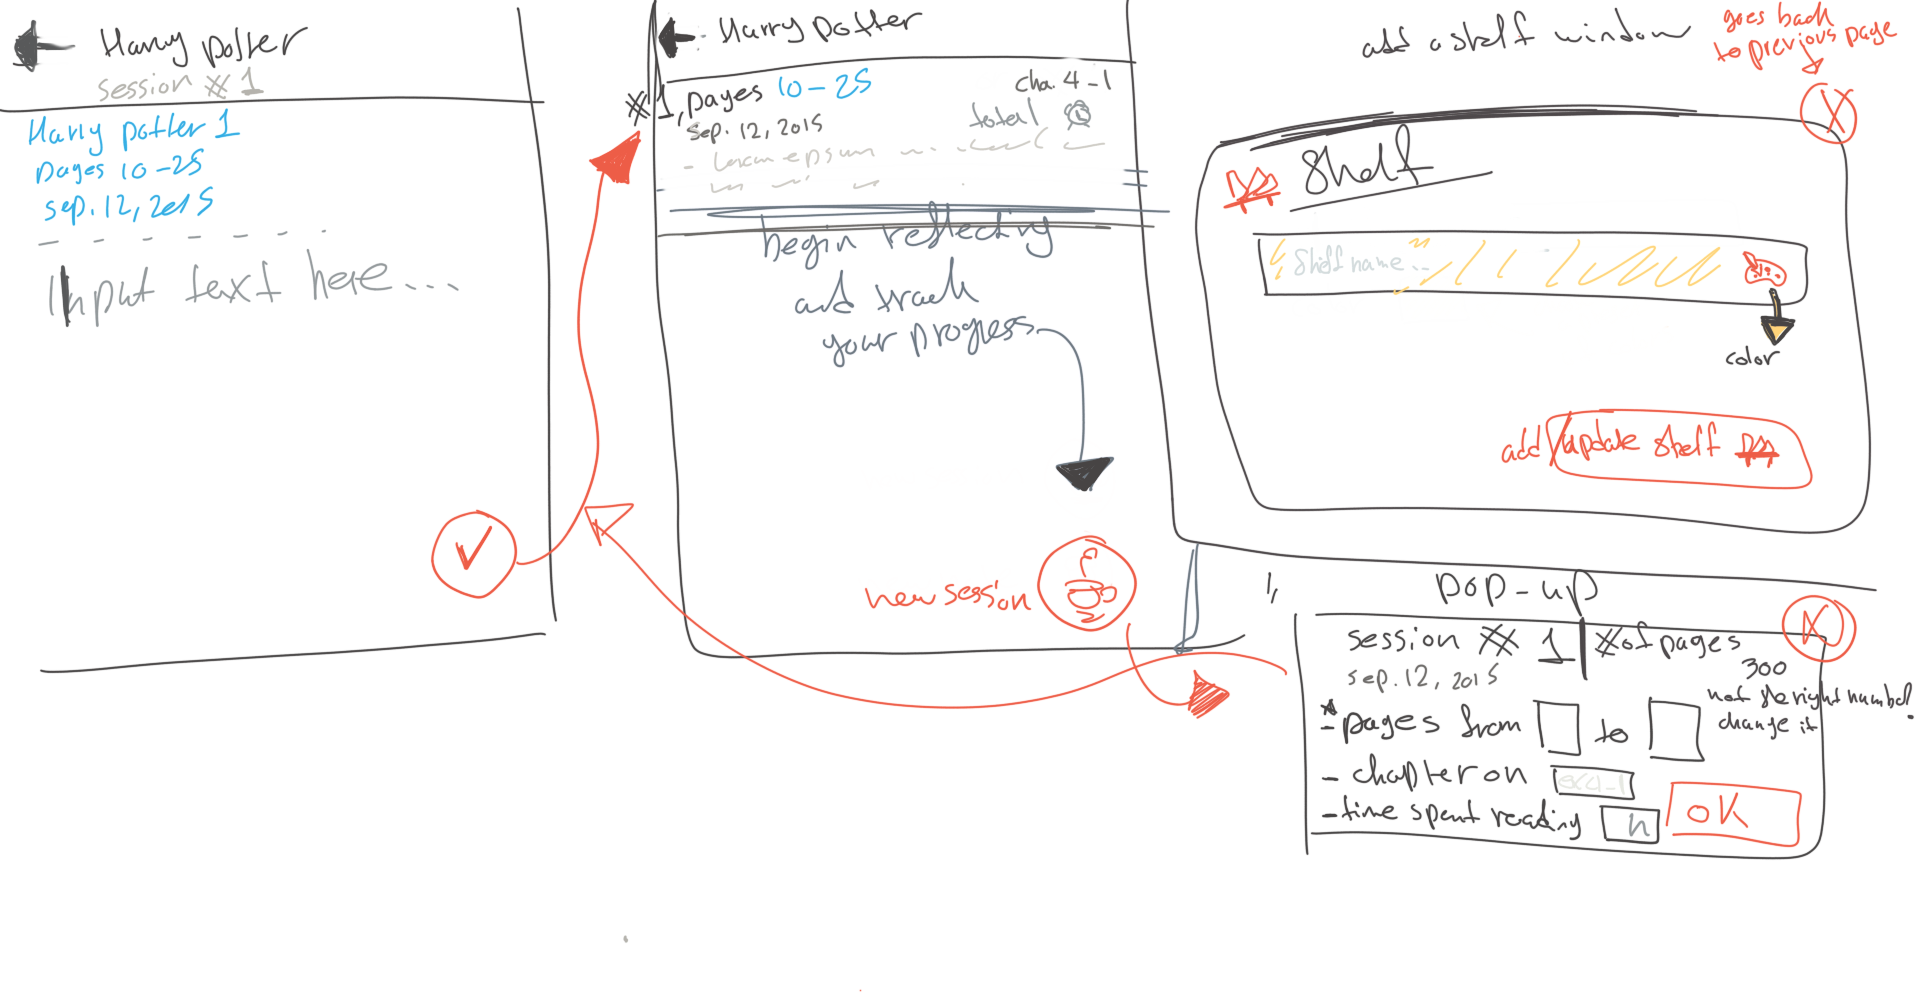 Harry potter
session # 1
Harry potter 1
pages 10-25
sep. 12, 2015
Input text here...
Harry potter
#1, pages 10-25
cha. 4-1
sep. 12, 2015
total
begin reflecting
and track
your progress
new session
add a shelf window
goes back
to previous page
X
Shelf
Shelf name...
color
add/update shelf
1,
pop-up
X
session # 1 | # of pages
300
sep. 12, 2015
not the right number
change it
* - pages from to
- chapter on
- time spent reading h
OK